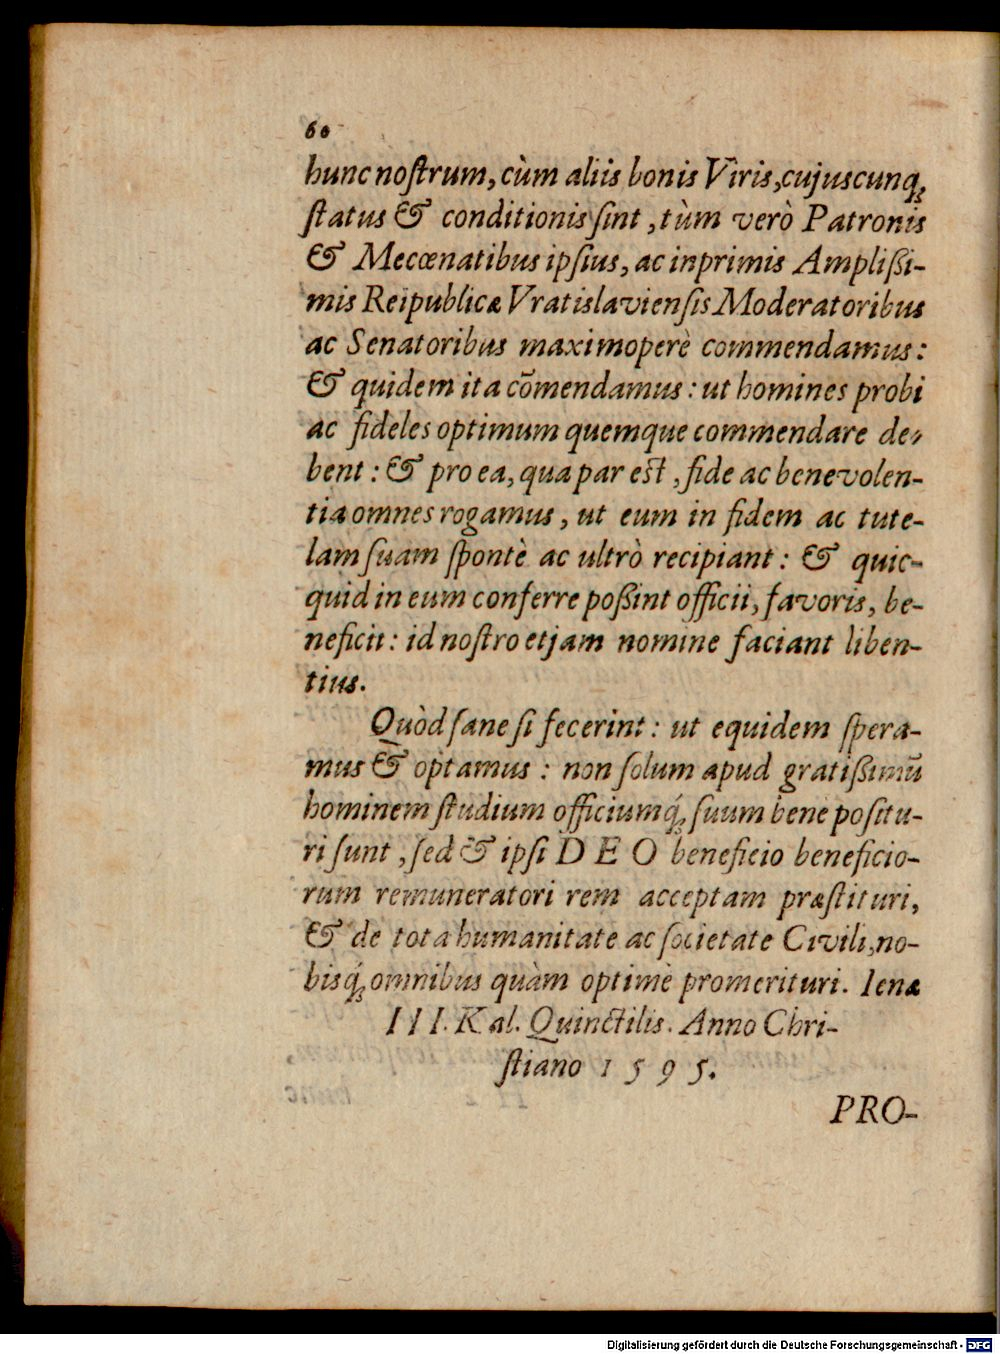 60
hunc noſtrum, cùm aliis bonis Viris, cujuscunq;
ſtatus & conditionis ſint, tùm verò Patronis
& Mecœnatibus ipſius, ac inprimis Ampliſsi-
mis Reipublicæ Vratislavienſis Moderatoribus
ac Senatoribus maximoperè commendamus:
& quidem ita cōmendamus: ut homines probi
ac fideles optimum quemque commendare de-
bent: & pro ea, qua par eſt, fide ac benevolen-
tia omnes rogamus, ut eum in fidem ac tute-
lam ſuam ſpontè ac ultrò recipiant: & quic-
quid in eum conferre poſsint officii, favoris, be-
neficii: id noſtro etjam nomine faciant liben-
tius.
Quòd ſane ſi fecerint: ut equidem ſpera-
mus & optamus: non ſolum apud gratiſsimū
hominem ſtudium officiumq́; ſuum bene poſitu-
ri ſunt, ſed & ipſi DEO beneficio beneficio-
rum remuneratori rem acceptam præſtituri,
& de tota humanitate ac ſocietate Civili, no-
bisq́; omnibus quàm optimè promerituri. Ienæ
III. Kal. Quinctilis. Anno Chri-
ſtiano 1595.
PRO-
Digitalisierung gefördert durch die Deutsche Forschungsgemeinschaft - DFG